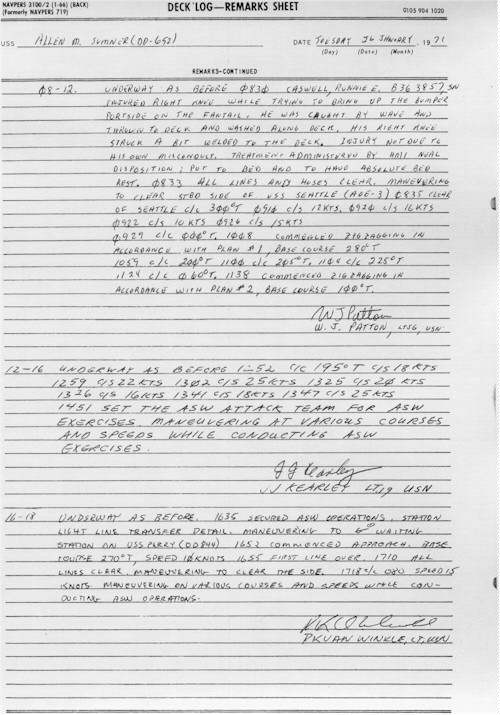 NAVPERS 3100/2 (1-66) (BACK)
(Formerly NAVPERS 719)
DECK LOG—REMARKS SHEET
0105 904 1020
USS ALLEN M. SUMNER (DD-692)
DATE TUESDAY 26 JANUARY, 1971
(Day) (Date) (Month)
REMARKS-CONTINUED
Ø8-12. UNDERWAY AS BEFORE Ø83Ø CASWELL, RONNIE E. B36 38 57, SN
INJURED RIGHT KNEE WHILE TRYING TO BRING UP THE BUMPER
PORTSIDE ON THE FANTAIL. HE WAS CAUGHT BY WAVE AND
THROWN TO DECK AND WASHED ALONG DECK. HIS RIGHT KNEE
STRUCK A BIT WELDED TO THE DECK. INJURY NOT DUE TO
HIS OWN MISCONDUCT. TREATMENT ADMINISTERED BY HM1 NEAL
DISPOSITION; PUT TO BED AND TO HAVE ABSOLUTE BED
REST. Ø833 ALL LINES AND HOSES CLEAR, MANEUVERING
TO CLEAR STBD SIDE OF USS SEATTLE (AOE-3) Ø835 CLEAR
OF SEATTLE C/C 3ØØ°T Ø914 C/S 12KTS, Ø92Ø C/S 16KTS
Ø922 C/S 1Ø KTS Ø926 C/S 15KTS
Ø929 C/C ØØØ°T, 1ØØ8 COMMENCED ZIGZAGGING IN
ACCORDANCE WITH PLAN #1, BASE COURSE 28Ø°T
1Ø59 C/C 2ØØ°T 11ØØ C/C 2Ø5°T, 11Ø4 C/C 225°T
1124 C/C Ø6Ø°T, 1138 COMMENCED ZIGZAGGING IN
ACCORDANCE WITH PLAN #2, BASE COURSE 1ØØ°T.
WJ Patton
W. J. PATTON, LTJG, USN
12-16 UNDERWAY AS BEFORE 1252 C/C 195°T C/S 18 KTS
1259 C/S 22 KTS 13Ø2 C/S 25 KTS 1325 C/S 2Ø KTS
1326 C/S 16KTS 1341 C/S 18KTS 1347 C/S 25KTS
1451 SET THE ASW ATTACK TEAM FOR ASW
EXERCISES. MANEUVERING AT VARIOUS COURSES
AND SPEEDS WHILE CONDUCTING ASW
EXERCISES.
JJ Kearley
JJ KEARLEY LTJG USN
16-18 UNDERWAY AS BEFORE. 1635 SECURED ASW OPERATIONS, STATION
LIGHT LINE TRANSFER DETAIL. MANEUVERING TO WAITING
STATION ON USS PERRY (DD844) 1652 COMMENCED APPROACH. BASE
COURSE 270°T, SPEED 10KNOTS 1655 FIRST LINE OVER. 1710 ALL
LINES CLEAR. MANEUVERING TO CLEAR THE SIDE. 1718 C/C 080 SPEED 15
KNOTS MANEUVERING ON VARIOUS COURSES AND SPEEDS WHILE CON-
DUCTING ASW OPERATIONS.
P.K. VAN WINKLE, LT, USN.